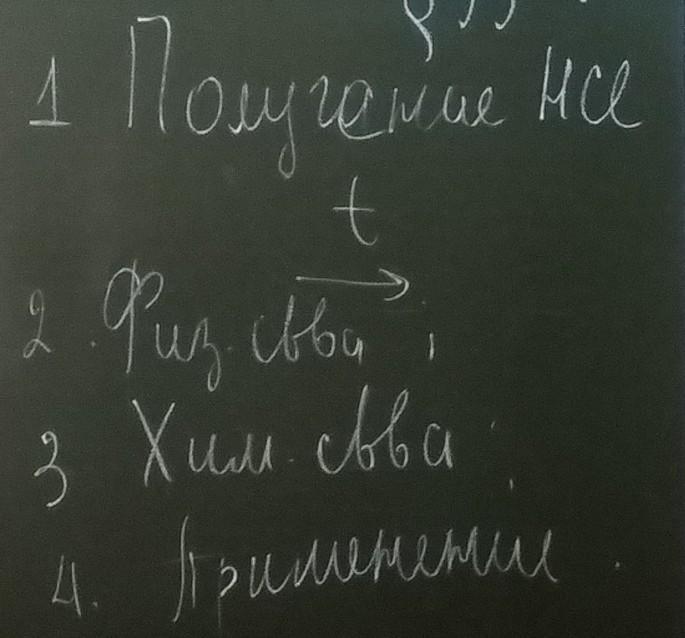 1 Получение HCl
t
→
2. Физ. св-ва
3 Хим. св-ва
4. Применение.